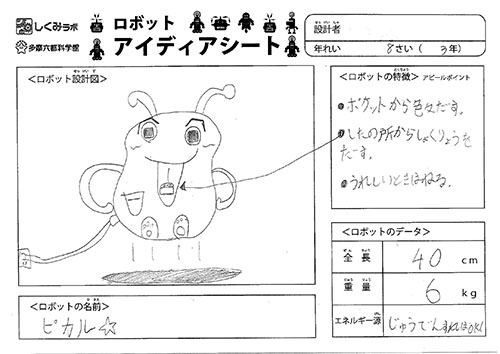 しくみラボ
多摩六都科学館
ロボット
アイディアシート
設計者
せっ けい しゃ
年れい 8さい ( 3年)
<ロボット設計図>
<ロボットの特徴> アピールポイント
●ポケットから色々だす。
●したの所からしょくりょうを
だす。
●うれしいときはねる。
<ロボットのデータ>
全長 40 cm
重量 6 kg
エネルギー源 じゅうでんすればOK!
<ロボットの名前>
ピカル☆